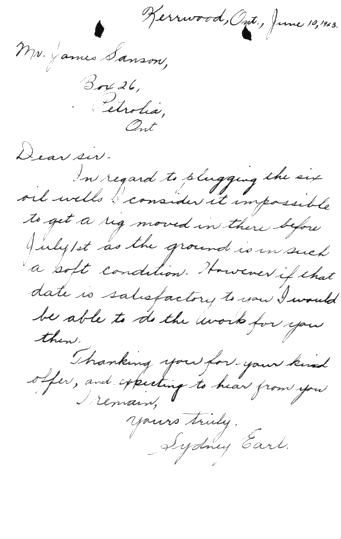 Kerrwood, Ont., June 10, 1943.
Mr. James Sanson,
Box 26,
Petrolia,
Ont
Dear sir.
In regard to plugging the six
oil wells I consider it impossible
to get a rig moved in there before
July 1st as the ground is in such
a soft condition. However if that
date is satisfactory to you I would
be able to do the work for you
then.
Thanking you for your kind
offer, and expecting to hear from you
I remain,
Yours truly.
Sydney Earl.